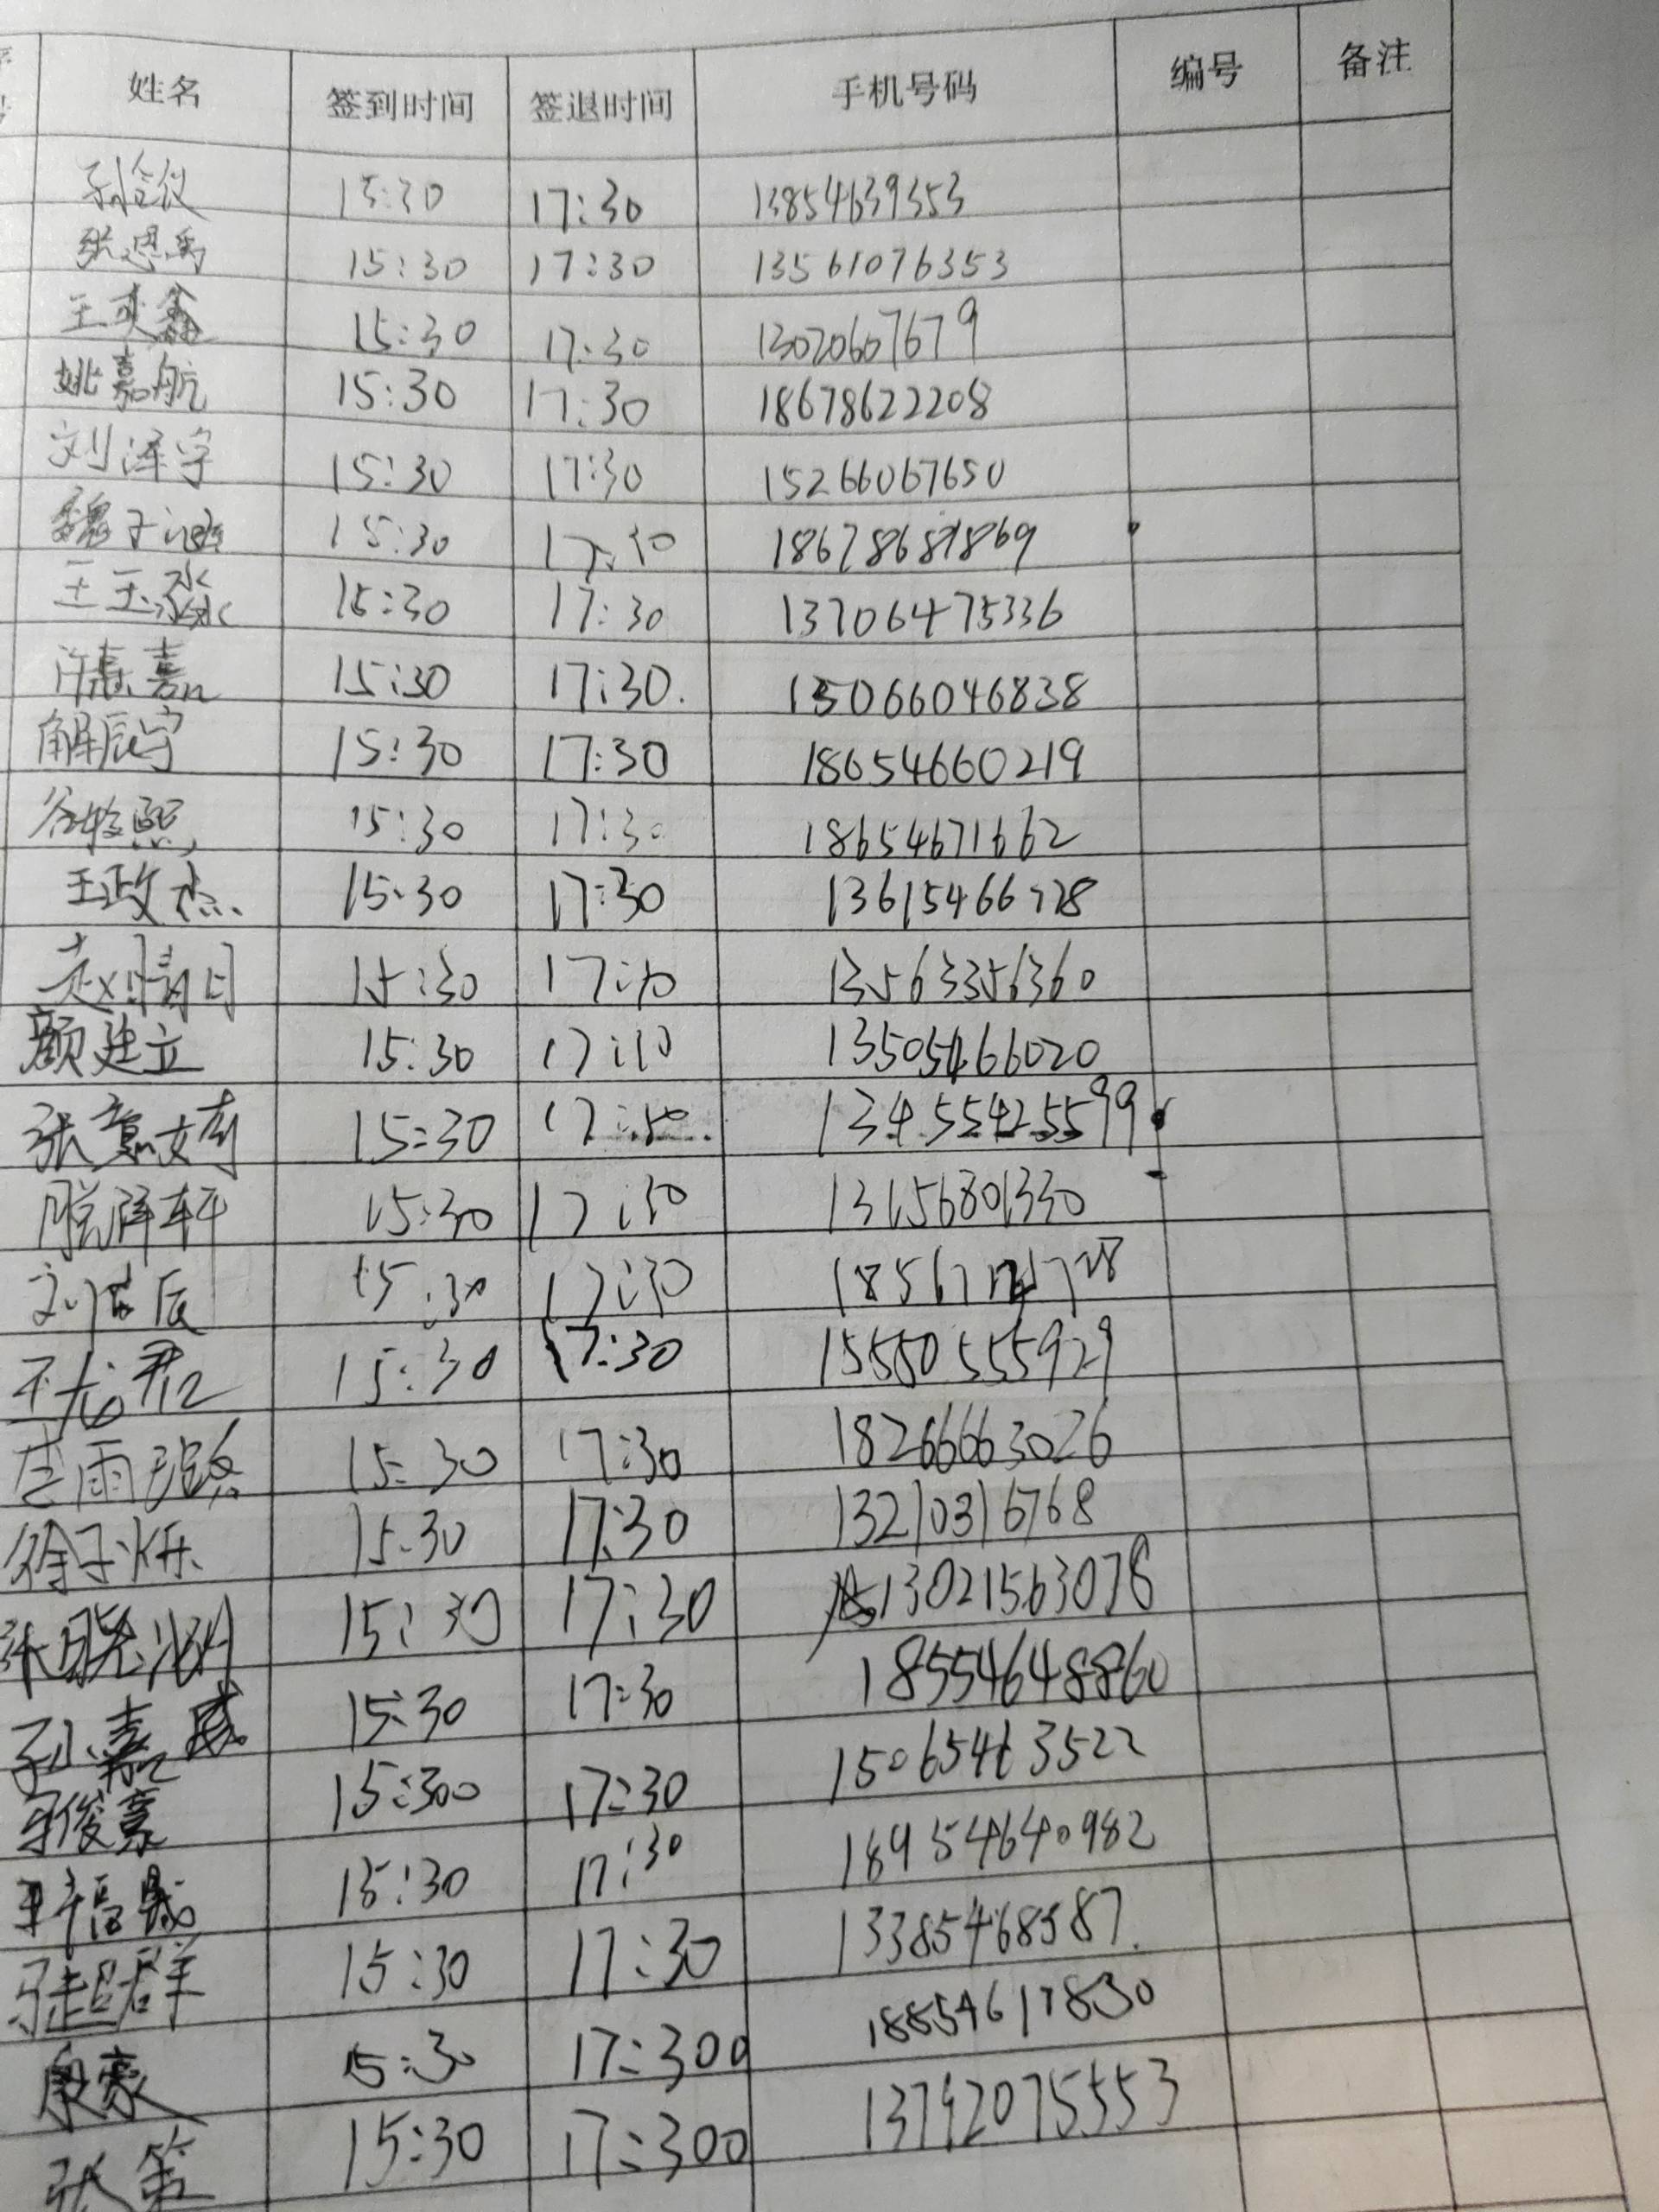 姓名 签到时间 签退时间 手机号码 编号 备注
15:30 17:30 13854639353
张恩禹 15:30 17:30 13561076353
王奕鑫 15:30 17:30 13020607679
姚嘉航 15:30 17:30 18678622208
刘泽宇 15:30 17:30 15266067650
魏子涵 15:30 17:30
王玉淼 15:30 17:30 13706475336
许嘉 15:30 17:30. 15066046838
解辰宇 15:30 17:30 18654660219
谷 熙 15:30 17:30 18654671662
王政杰 15:30 17:30 13615466728
赵晴月 15:30 17:30 13563356360
颜建立 15:30 17:30 13505466020
张意婧 15:30 17:30 13455425599
脱泽轩 15:30 17:30 13156801330
刘 辰 15:30 17:30
王龙君 15:30 17:30 15550555929
雨 15:30 17:30 18266663026
徐子烁 15:30 17:30 13210316768
张晓 15:30 17:30 13021563078
孙嘉 15:30 17:30 18554648860
俊豪 15:300 17:30 15065463522
15:30 17:30 18954640982
超群 15:30 17:30 13385468587.
康豪 15:30 17:300 18854617830
张 15:30 17:300 13792075553